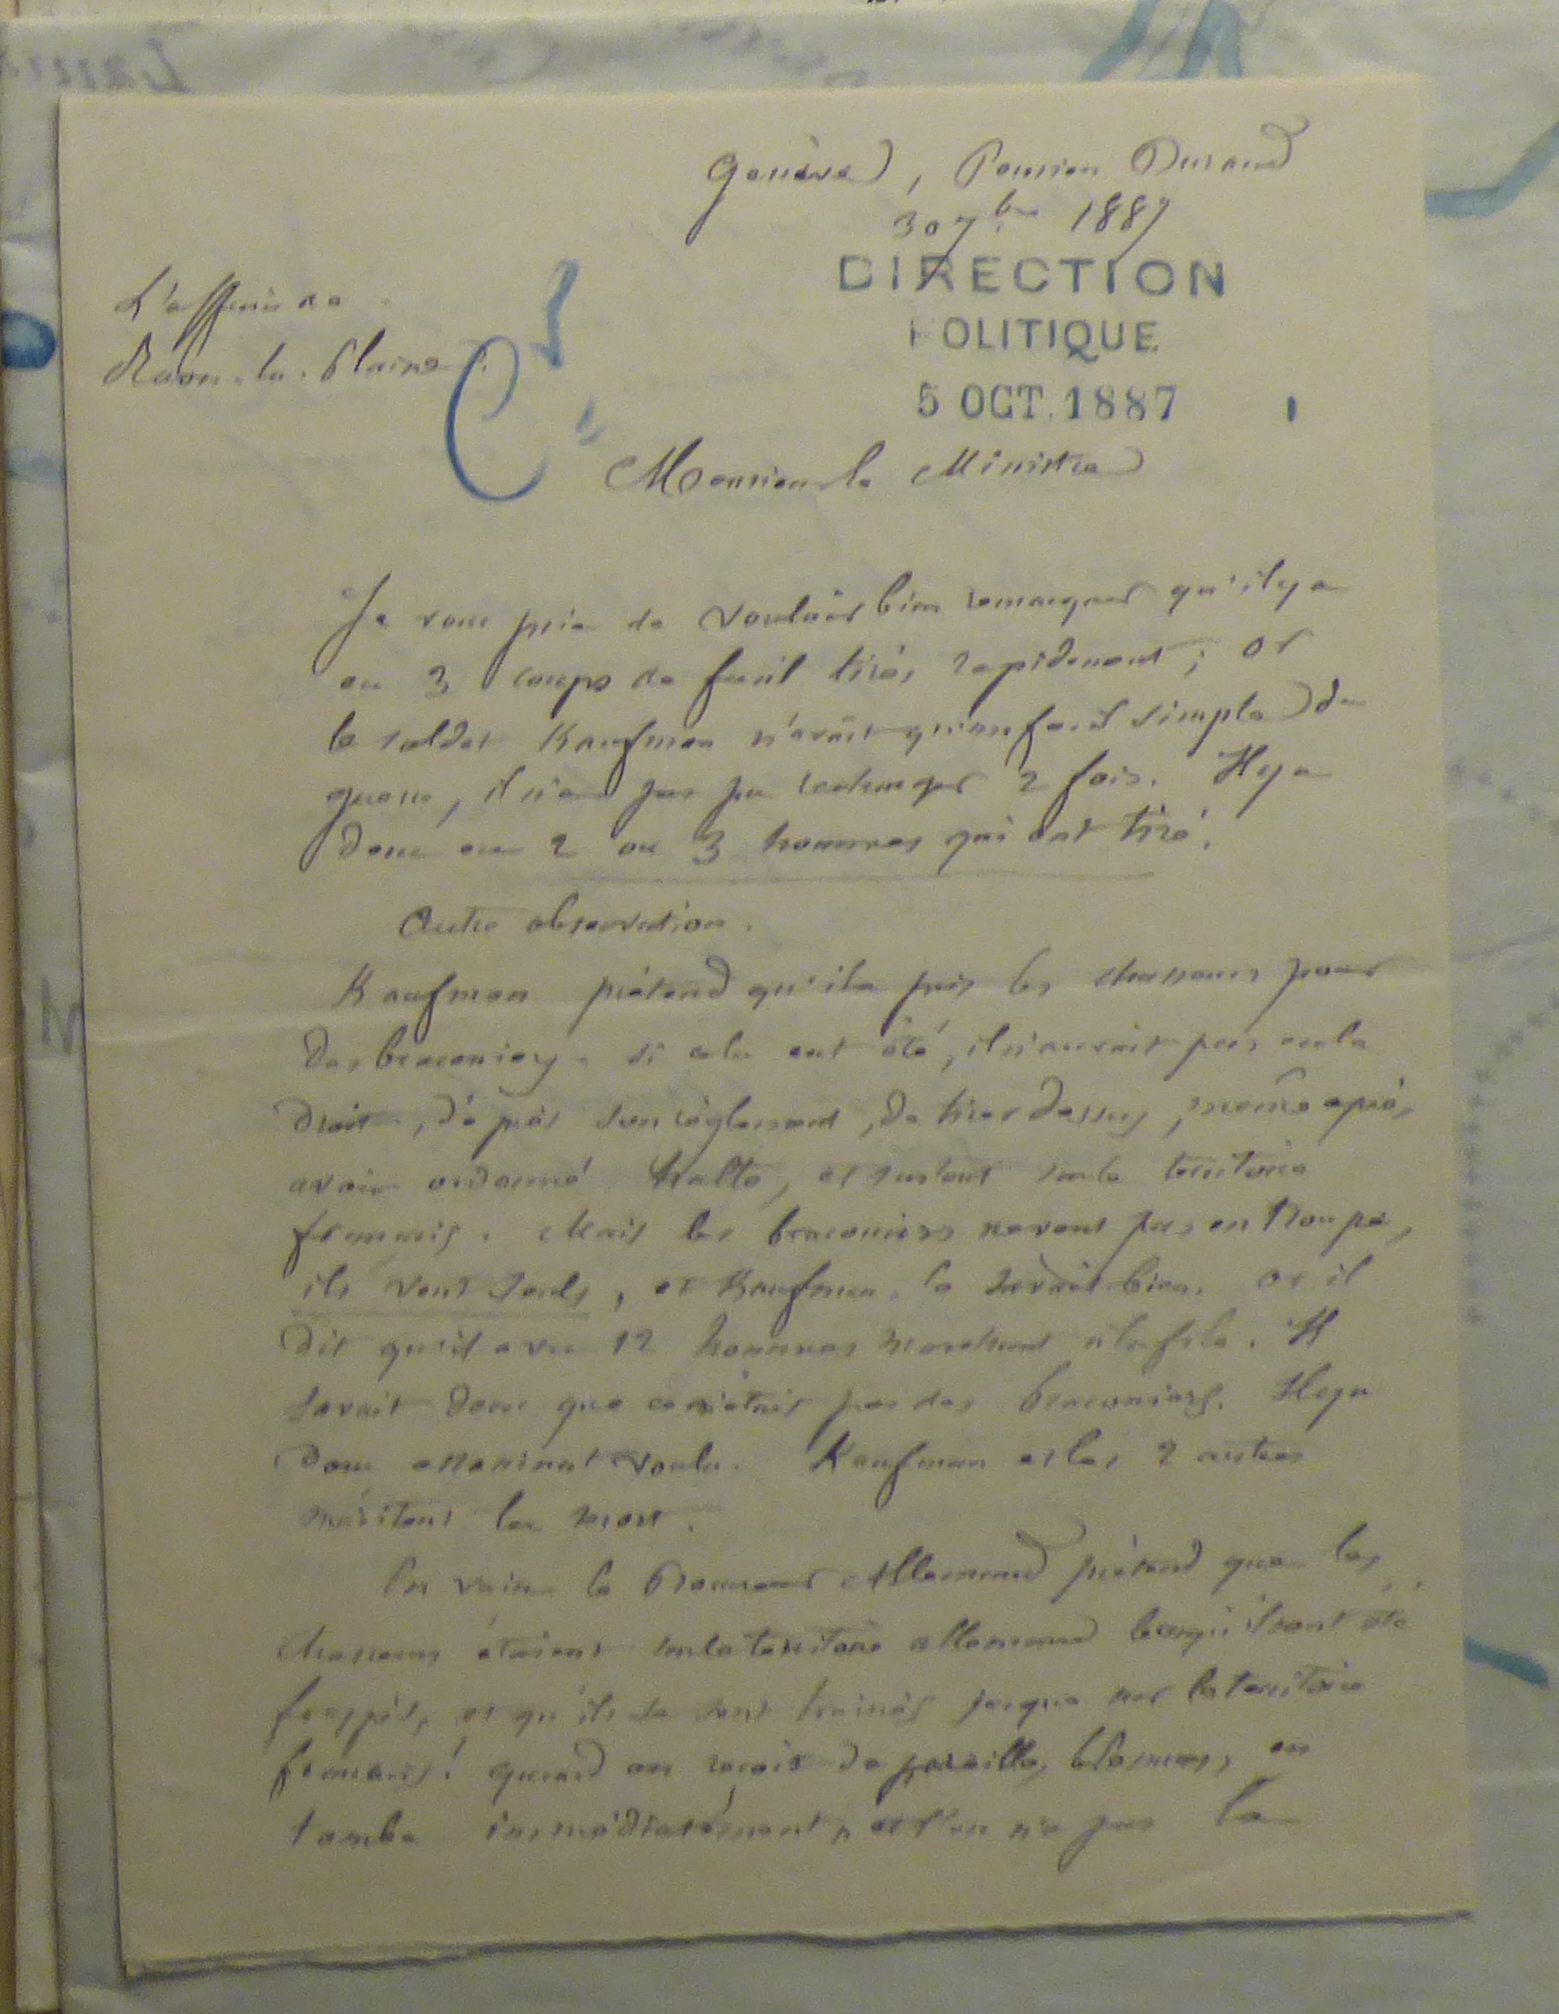 Genève, Pension Durand
30 7bre 1887
DIRECTION
POLITIQUE
5 OCT. 1887
L'affaire de
Raon-la-Plaine.
Monsieur le Ministre
Je vous prie de vouloir bien remarquer qu'il y a
eu 3 coups de fusil tirés rapidement; or
le soldat Kaufman n'avait qu'un fusil simple de
guerre, il n'a pas pu recharger 2 fois. Il y a
donc eu 2 ou 3 hommes qui ont tiré.
Autre observation.
Kaufman prétend qu'il a pris les chasseurs pour
des braconiers. si cela eut été, il n'aurait pas eu le
droit, d'après son règlement, de tirer dessus, même après
avoir ordonné halte, et surtout sur le territoire
français. Mais les braconiers ne vont pas en troupe,
ils vont seuls, et Kaufman le savait bien. or il
dit qu'il a vu 12 hommes marchant à la file. Il
savait donc que ce n'était pas des braconiers. Il y a
donc assassinat voulu. Kaufman et les 2 autres
méritent la mort.
En vain le Procureur Allemand prétend que les
chasseurs étaient sur le territoire allemand lorsqu'ils ont été
frappés, et qu'ils se sont trainés jusque sur le territoire
français! quand on reçoit de pareilles blessures, on
tombe immédiatement, et l'on n'a pas la